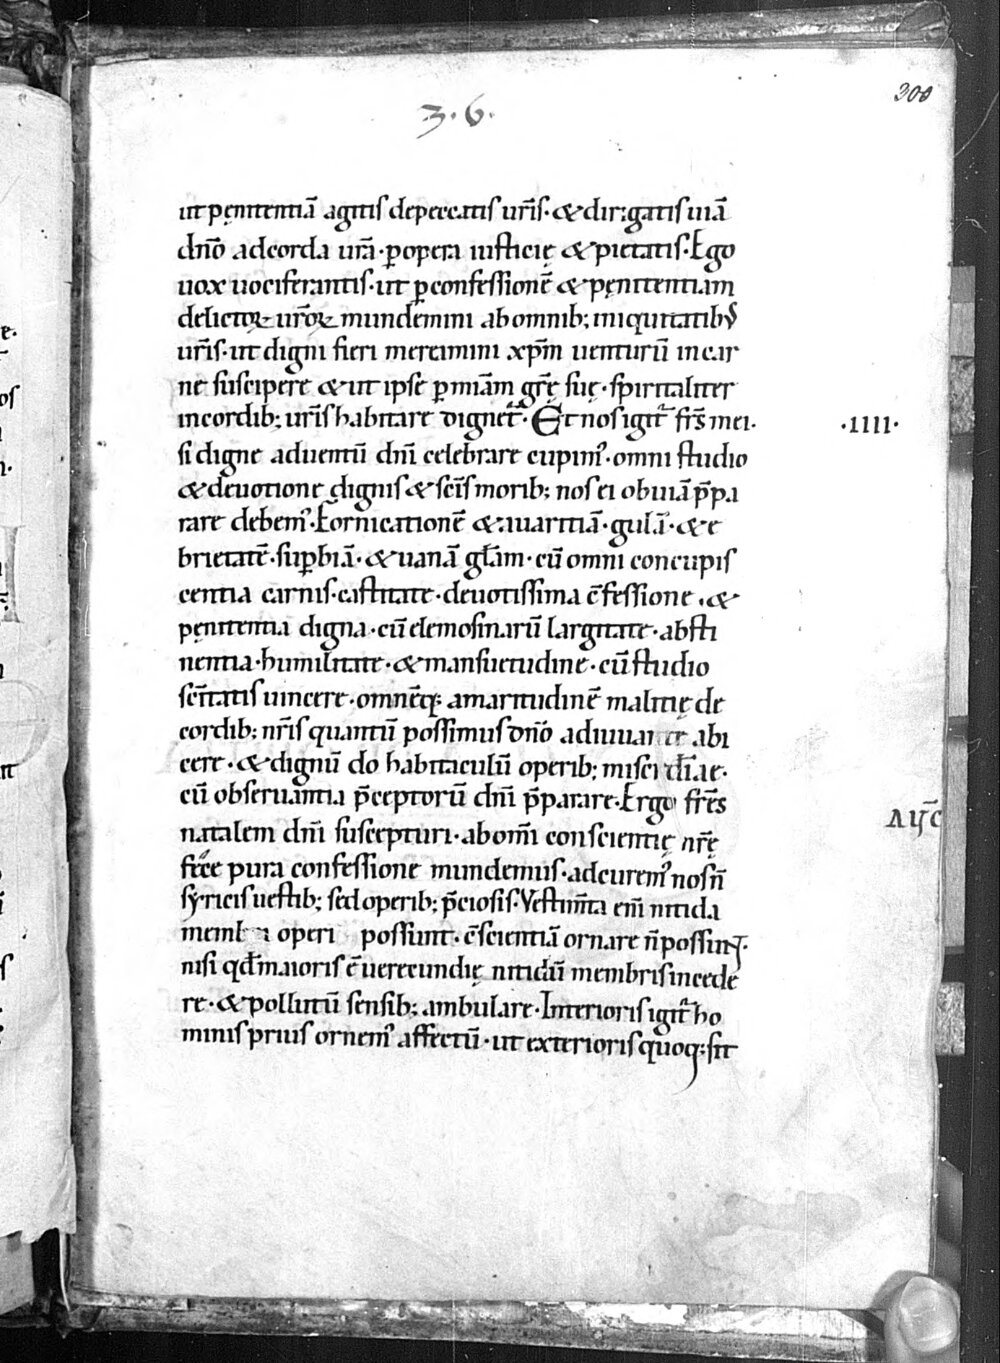 300
3·6·
ut pęnitentiā agatis depeccatis ur̄is· & dirigatis uiā
dn̄o adcorda ur̄a· ꝑopera iusticię & pietatis· Ego
uox uociferantis· ut ꝑconfessionē & pęnitentiam
delictoꝝ ur̄oꝝ mundemini abomnib; iniquitatibus
ur̄is· ut digni fieri mereamini xp̄m uenturū incar
ne suscipere & ut ipse ꝑmiām gr̄ę suę· spiritaliter
incordib; ur̄is habitare dignet᷑· Et nos igit᷑ fr̄s mei·
·IIII·
si digne aduentū dn̄i celebrare cupimꝰ· omni studio
& deuotione dignis & sc̄is morib; nos ei obuiā p̄pa
rare debemꝰ· Fornicationē & auaritiā· gulā· & e
brietatē· suꝑbiā· & uanā gl̄am· cū omni concupis
centia carnis· castitate· deuotissima c̄fessione· &
pęnitentia digna· cū elemosinarū largitate· absti
nentia· humilitate· & mansuetudine· cū studio
sc̄itatis uincere· omnēq; amaritudinē malitię de
cordib; nr̄is quantū possimus dn̄o adiuuante abi
cere· & dignū do habitaculū operib; misericordiae·
cū obseruantia p̄ceptorū dn̄i p̄parare· Ergo fr̄es
natalem dn̄i suscepturi· abom̄i conscientię nr̄ę
fęce pura confessione mundemus· adcuremꝰ nos n̄
syricis uestib; sed operib; p̄ciosis· Vestim̄ta eni̅ nitida
membra operi possunt· c̄scientiā ornare n̄ possunt·
nisi qđ maioris ē uerecundię nitidū membris incede
re· & pollutū sensib; ambulare· Interioris igit᷑ ho
minis prius ornemꝰ affectū· ut exterioris quoq; sit